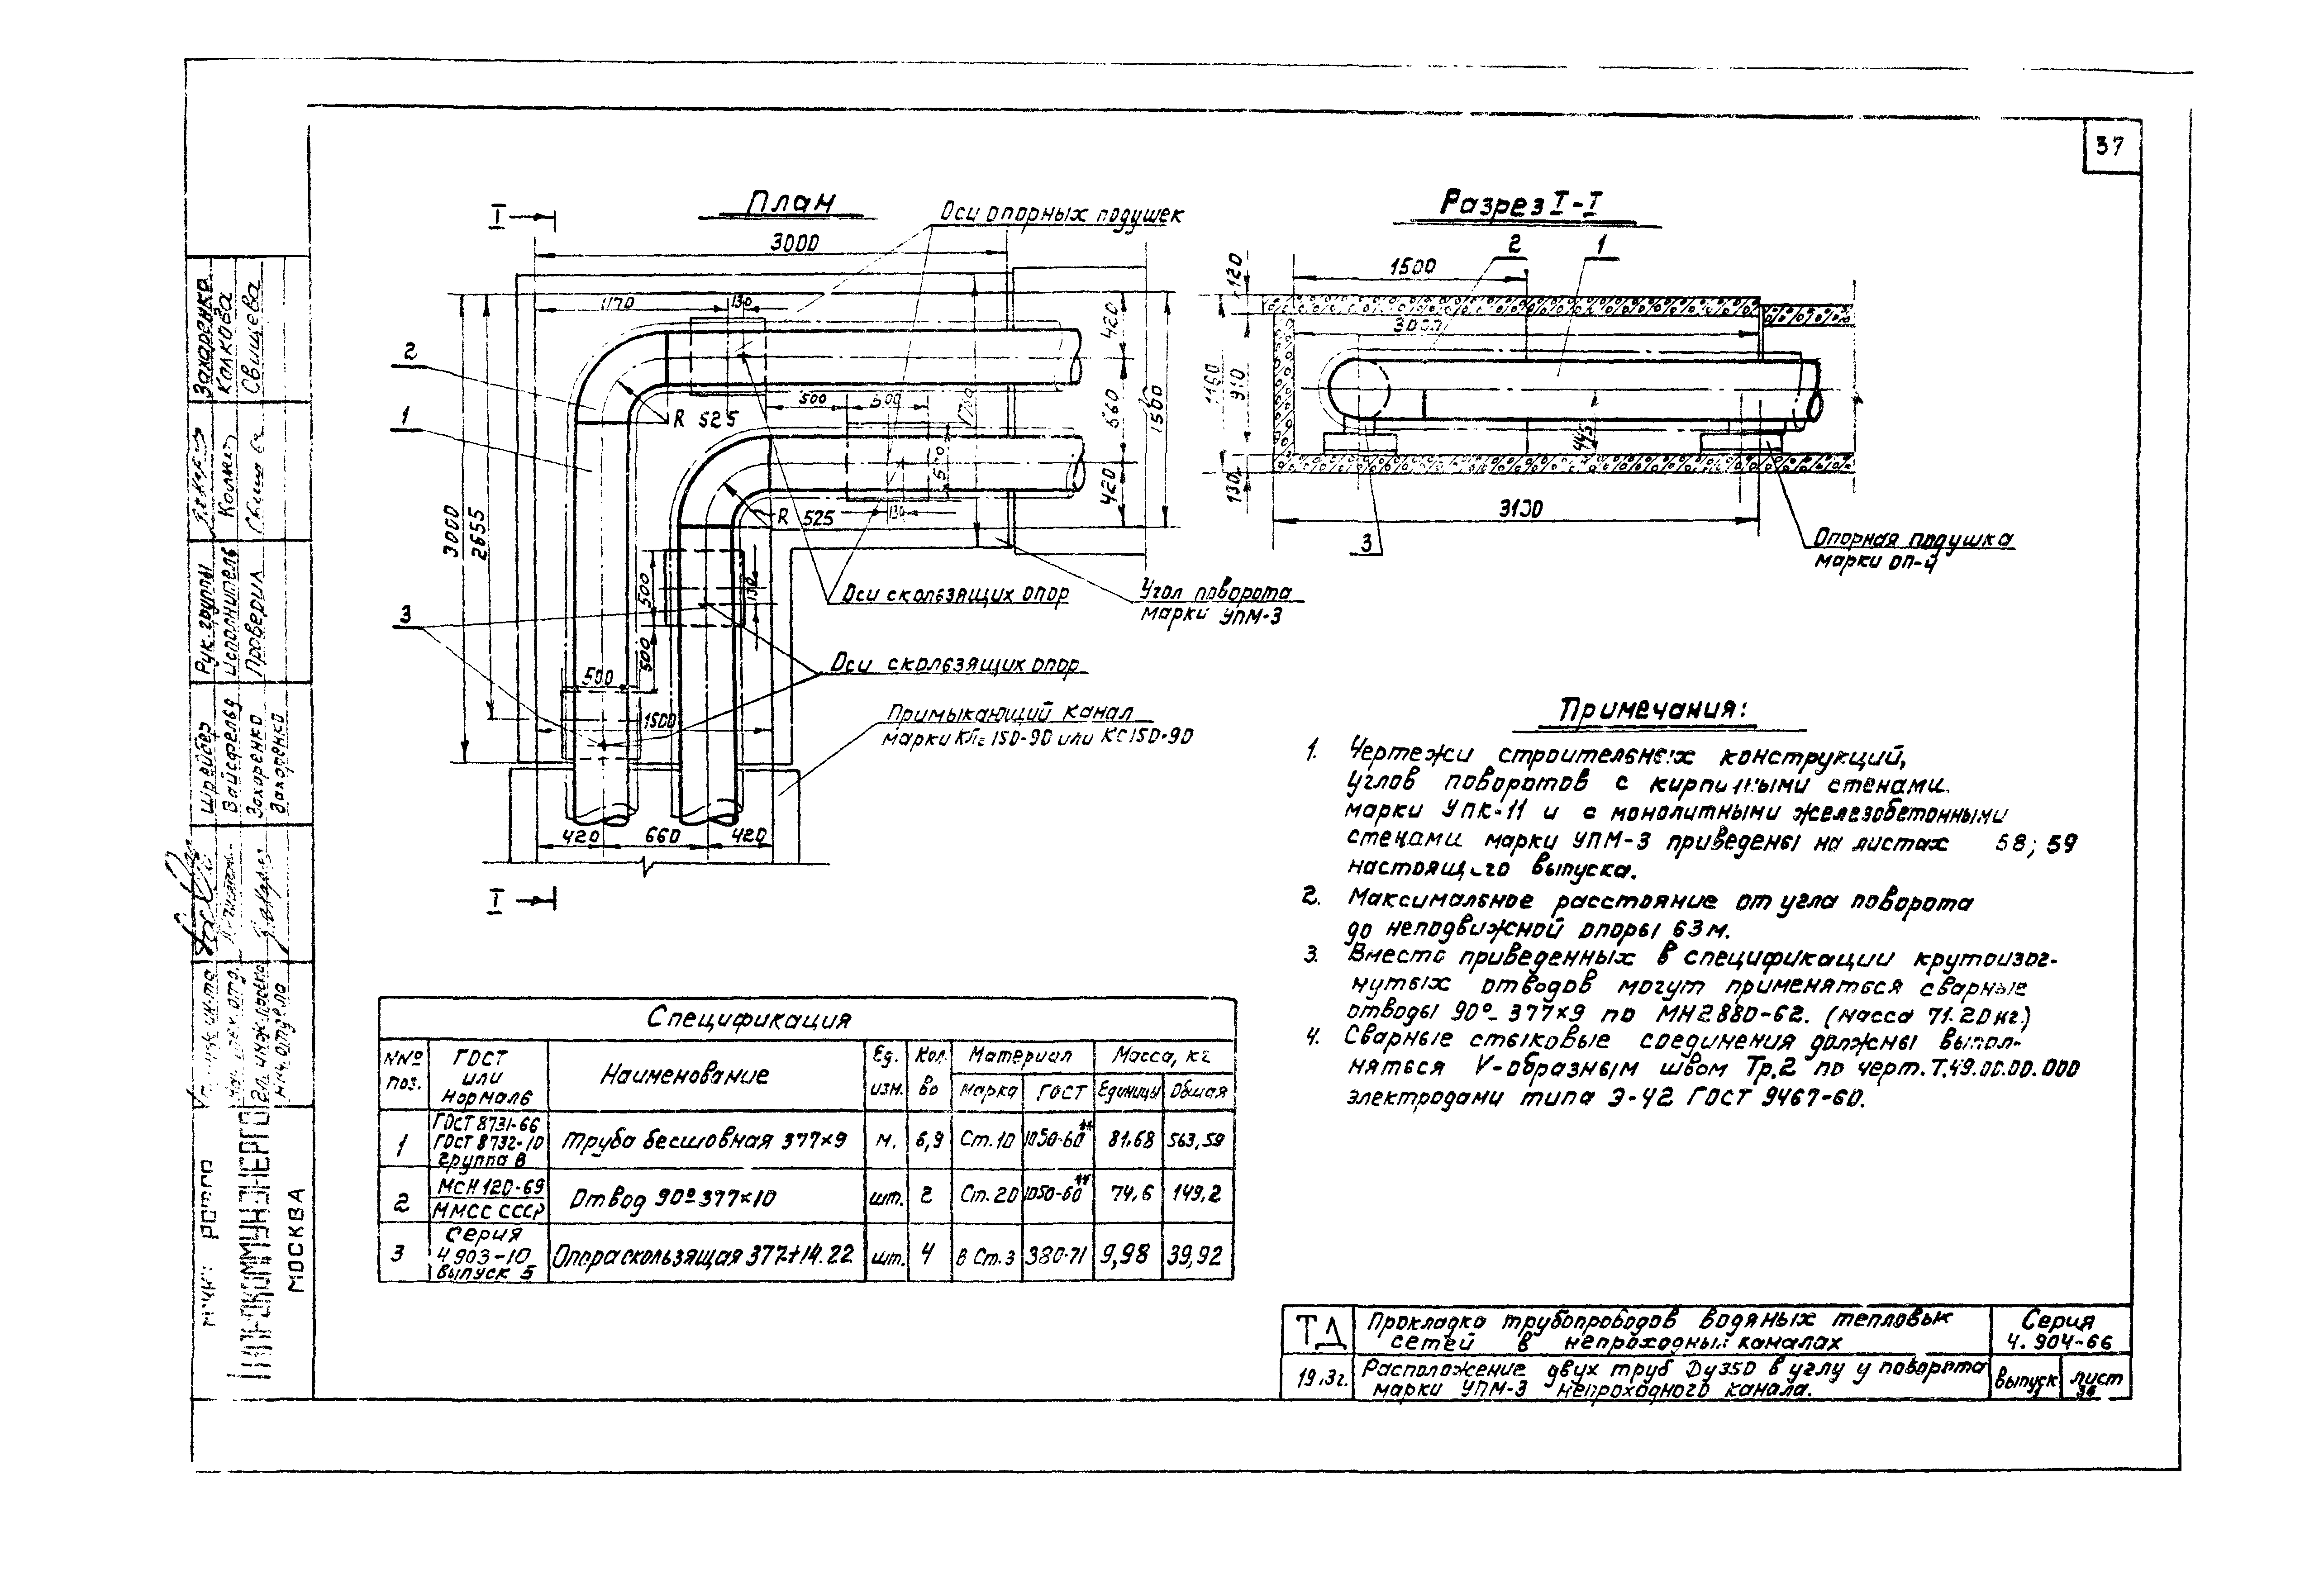 37
План
I
Оси опорных подушек
3000
1170
130
2
1
R 525
500
500
1780
420
660
420
1500
500
R 525
130
3000
2655
500
130
500
3
500
1500
Оси скользящих опор
Угол поворота
марки УПМ-3
Оси скользящих опор
Примыкающий канал
марки КЛс 150-90 или КС150-90
420
660
420
I
Разрез I-I
2
1
120
1500
3000
1160
910
445
130
3100
3
Опорная подушка
марки ОП-4
Примечания:
1. Чертежи строительных конструкций,
углов поворотов с кирпичными стенами
марки УПК-11 и с монолитными железобетонными
стенами марки УПМ-3 приведены на листах 58; 59
настоящего выпуска.
2. Максимальное расстояние от угла поворота
до неподвижной опоры 63м.
3. Вместо приведенных в спецификации крутоизог-
нутых отводов могут применяться сварные
отводы 90°- 377×9 по МН2880-62. (масса 71.20кг.)
4. Сварные стыковые соединения должны выпол-
няться V-образным швом Тр.2 по черт. Т.49.00.00.000
электродами типа Э-42 ГОСТ 9467-60.
Спецификация
NNº поз. ГОСТ или Нормаль Наименование Ед. изм. Кол. во Материал Масса, кг
Марка ГОСТ Единицы Общая
1 ГОСТ 8731-66 ГОСТ 8732-70 группа В Труба бесшовная 377×9 м. 6,9 Ст.10 1050-60** 81.68 563,59
2 МСН 120-69 ММСС СССР Отвод 90º377×10 шт. 2 Ст.20 1050-60** 74,6 149,2
3 Серия 4.903-10 Выпуск 5 Опора скользящая 377Т14.22 шт. 4 В Ст.3 380-71 9,98 39,92
ТД
Прокладка трубопроводов водяных тепловых
сетей в непроходных каналах
Серия
4.904-66
Расположение двух труб Ду350 в углу поворота
марки УПМ-3 непроходного канала.
Выпуск
лист
36
Рук. группы
Захаренко
Исполнитель
Колкова
Проверил
Свищева
Шрейбер
Вайсфельд
Захаренко
Захаренко
Нач. отдела
ГИПРОКОММУНЭНЕРГО
МОСКВА